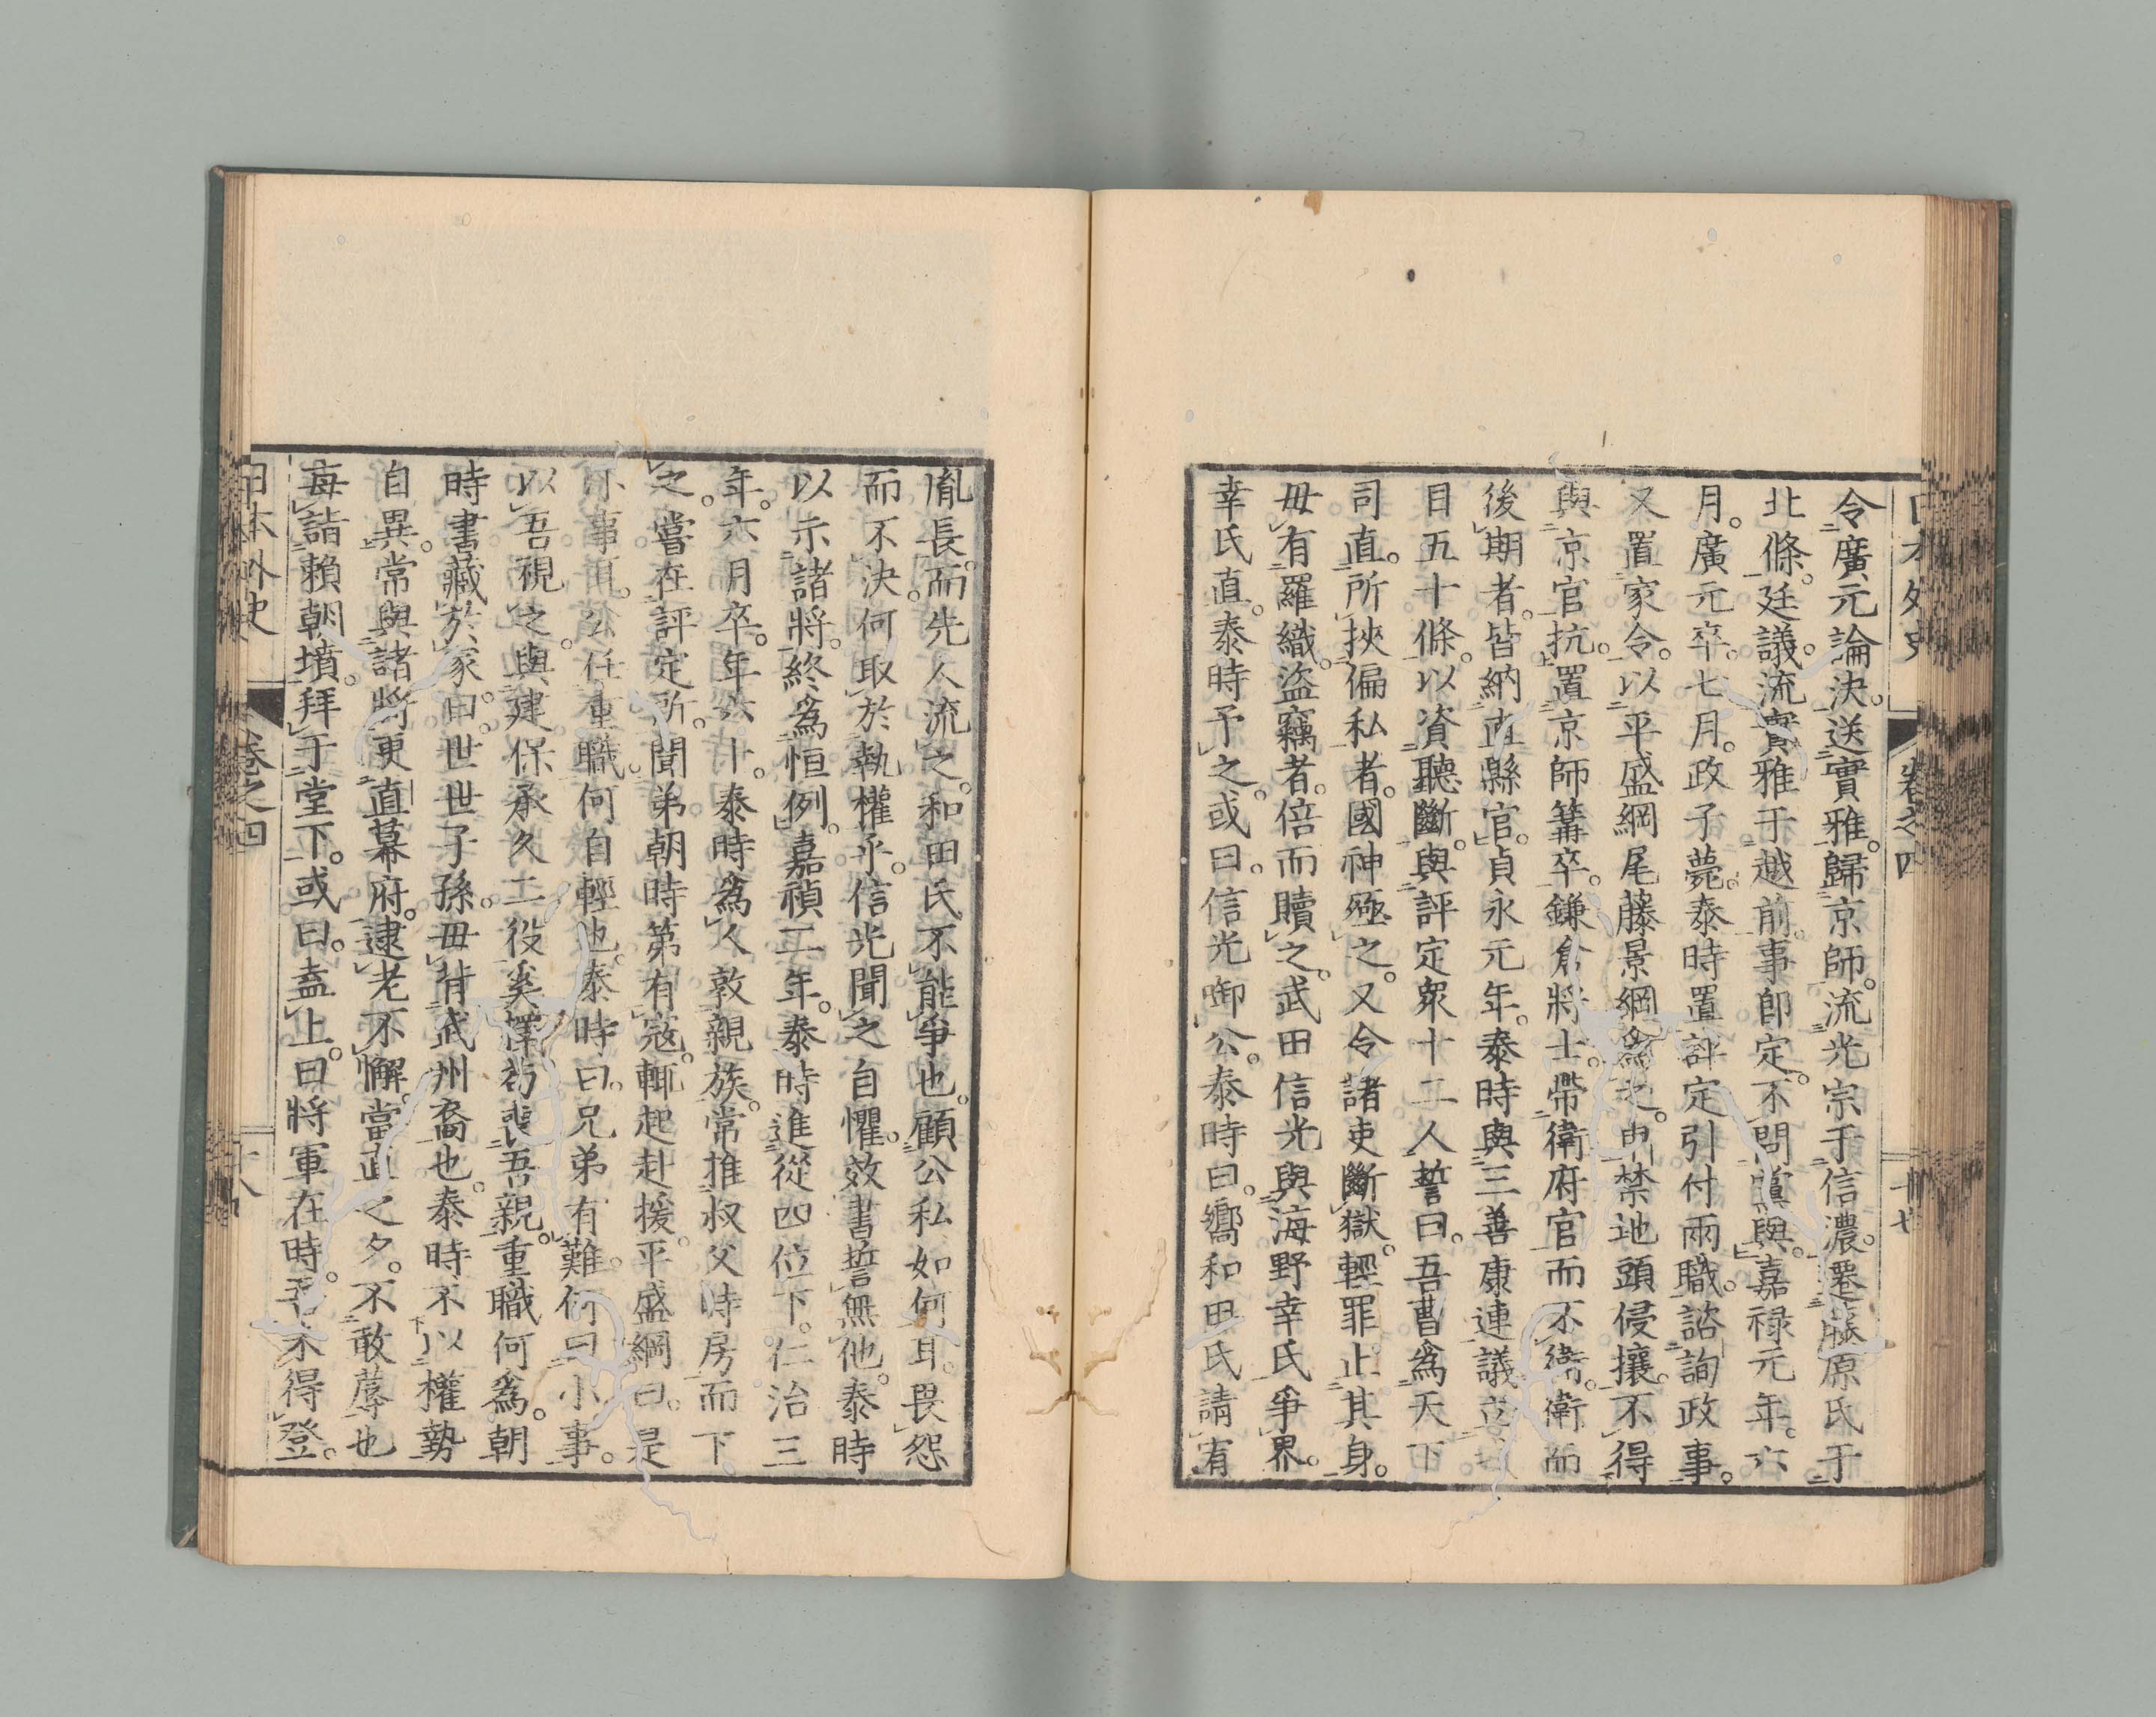 日本外史 卷之四 十七
令廣元論決。送實雅。歸京師。流光宗于信濃。遷藤原氏于
北條。廷議。流實雅于越前。事卽定。不問黨與。嘉禄元年。六
月。廣元卒。七月。政子薨。泰時置評定引付兩職。諮詢政事。
又置家令。以平盛綱尾藤景綱爲之。申禁地頭侵攘。不得
與京官抗。置京師篝卒。鎌倉將士。帶衛府官而不衛衛而
後期者。皆納直縣官。貞永元年。泰時與三善康連議立
目五十條。以資聽斷。與評定衆十二人誓曰。吾曹爲天下
司直。所挾偏私者。國神殛之。又令諸吏斷獄。輕罪止其身。
毋有羅織。盜竊者。倍而贖之。武田信光與海野幸氏爭界。
幸氏直。泰時予之。或曰。信光啣公。泰時曰。嚮和田氏請宥
胤長。而先人流之。和田氏不能爭也。顧公私如何耳。畏怨
而不決。何取於執權乎。信光聞之自懼。效書誓無他。泰時
以示諸將。終爲恒例。嘉禎二年。泰時進從四位下。仁治三
年。六月卒。年六十。泰時爲人敦親族。常推叔父時房而下
之。嘗在評定所。聞弟朝時第有寇。輙起赴援。平盛綱曰。是
小事耳。公任重職。何自輕也。泰時曰。兄弟有難。何曰小事。
以吾視之。與建保承久二役奚擇。苟喪吾親。重職何爲。朝
時書藏於家曰。世世子孫。毋背武州裔也。泰時不以權勢
自異。常與諸將更直幕府。逮老不懈。當直之夕。不敢蓐也
每詣賴朝墳。拜于堂下。或曰。盍上。曰將軍在時。吾未得登。
日本外史 卷之四 十八